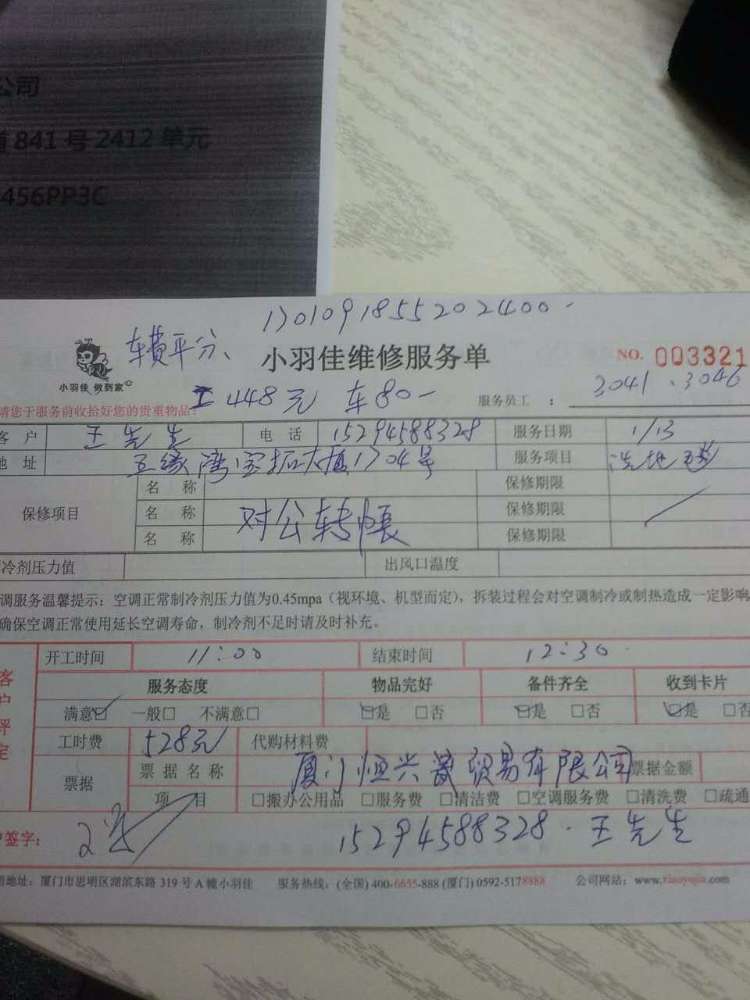 公司
道841号2412单元
456PP3C
1701091855202400.
车费平分、
小羽佳 做到家
小羽佳维修服务单
NO. 003321
工448元 车80-
服务员工 : 3041.3046
请您于服务前收拾好您的贵重物品:
客 户 王先生 电 话 15294588328 服务日期 1/13
地 址 五缘湾宝拓大厦1704号 服务项目 洗地毯
保修项目 名 称 保修期限
名 称 对公转帐 保修期限
名 称 保修期限
冷剂压力值 出风口温度
调服务温馨提示：空调正常制冷剂压力值为0.45mpa（视环境、机型而定），拆装过程会对空调制冷或制热造成一定影响
确保空调正常使用延长空调寿命，制冷剂不足时请及时补充。
开工时间 11:00 结束时间 12:30
客户评定
服务态度 物品完好 备件齐全 收到卡片
满意☑ 一般□ 不满意□ ☑是 □否 ☑是 □否 ☑是 □否
工时费 528元 代购材料费
票据 票据名称 厦门恒兴 贸易有限公司 票据金额
项 目 □搬办公用品 □服务费 □清洁费 □空调服务费 □清洗费 □疏通
户签字:
15294588328.王先生
地址: 厦门市思明区湖滨东路 319 号 A 幢小羽佳 服务热线: (全国) 400-6655-888 (厦门) 0592-5178888 公司网站: www.xiaoyujia.com